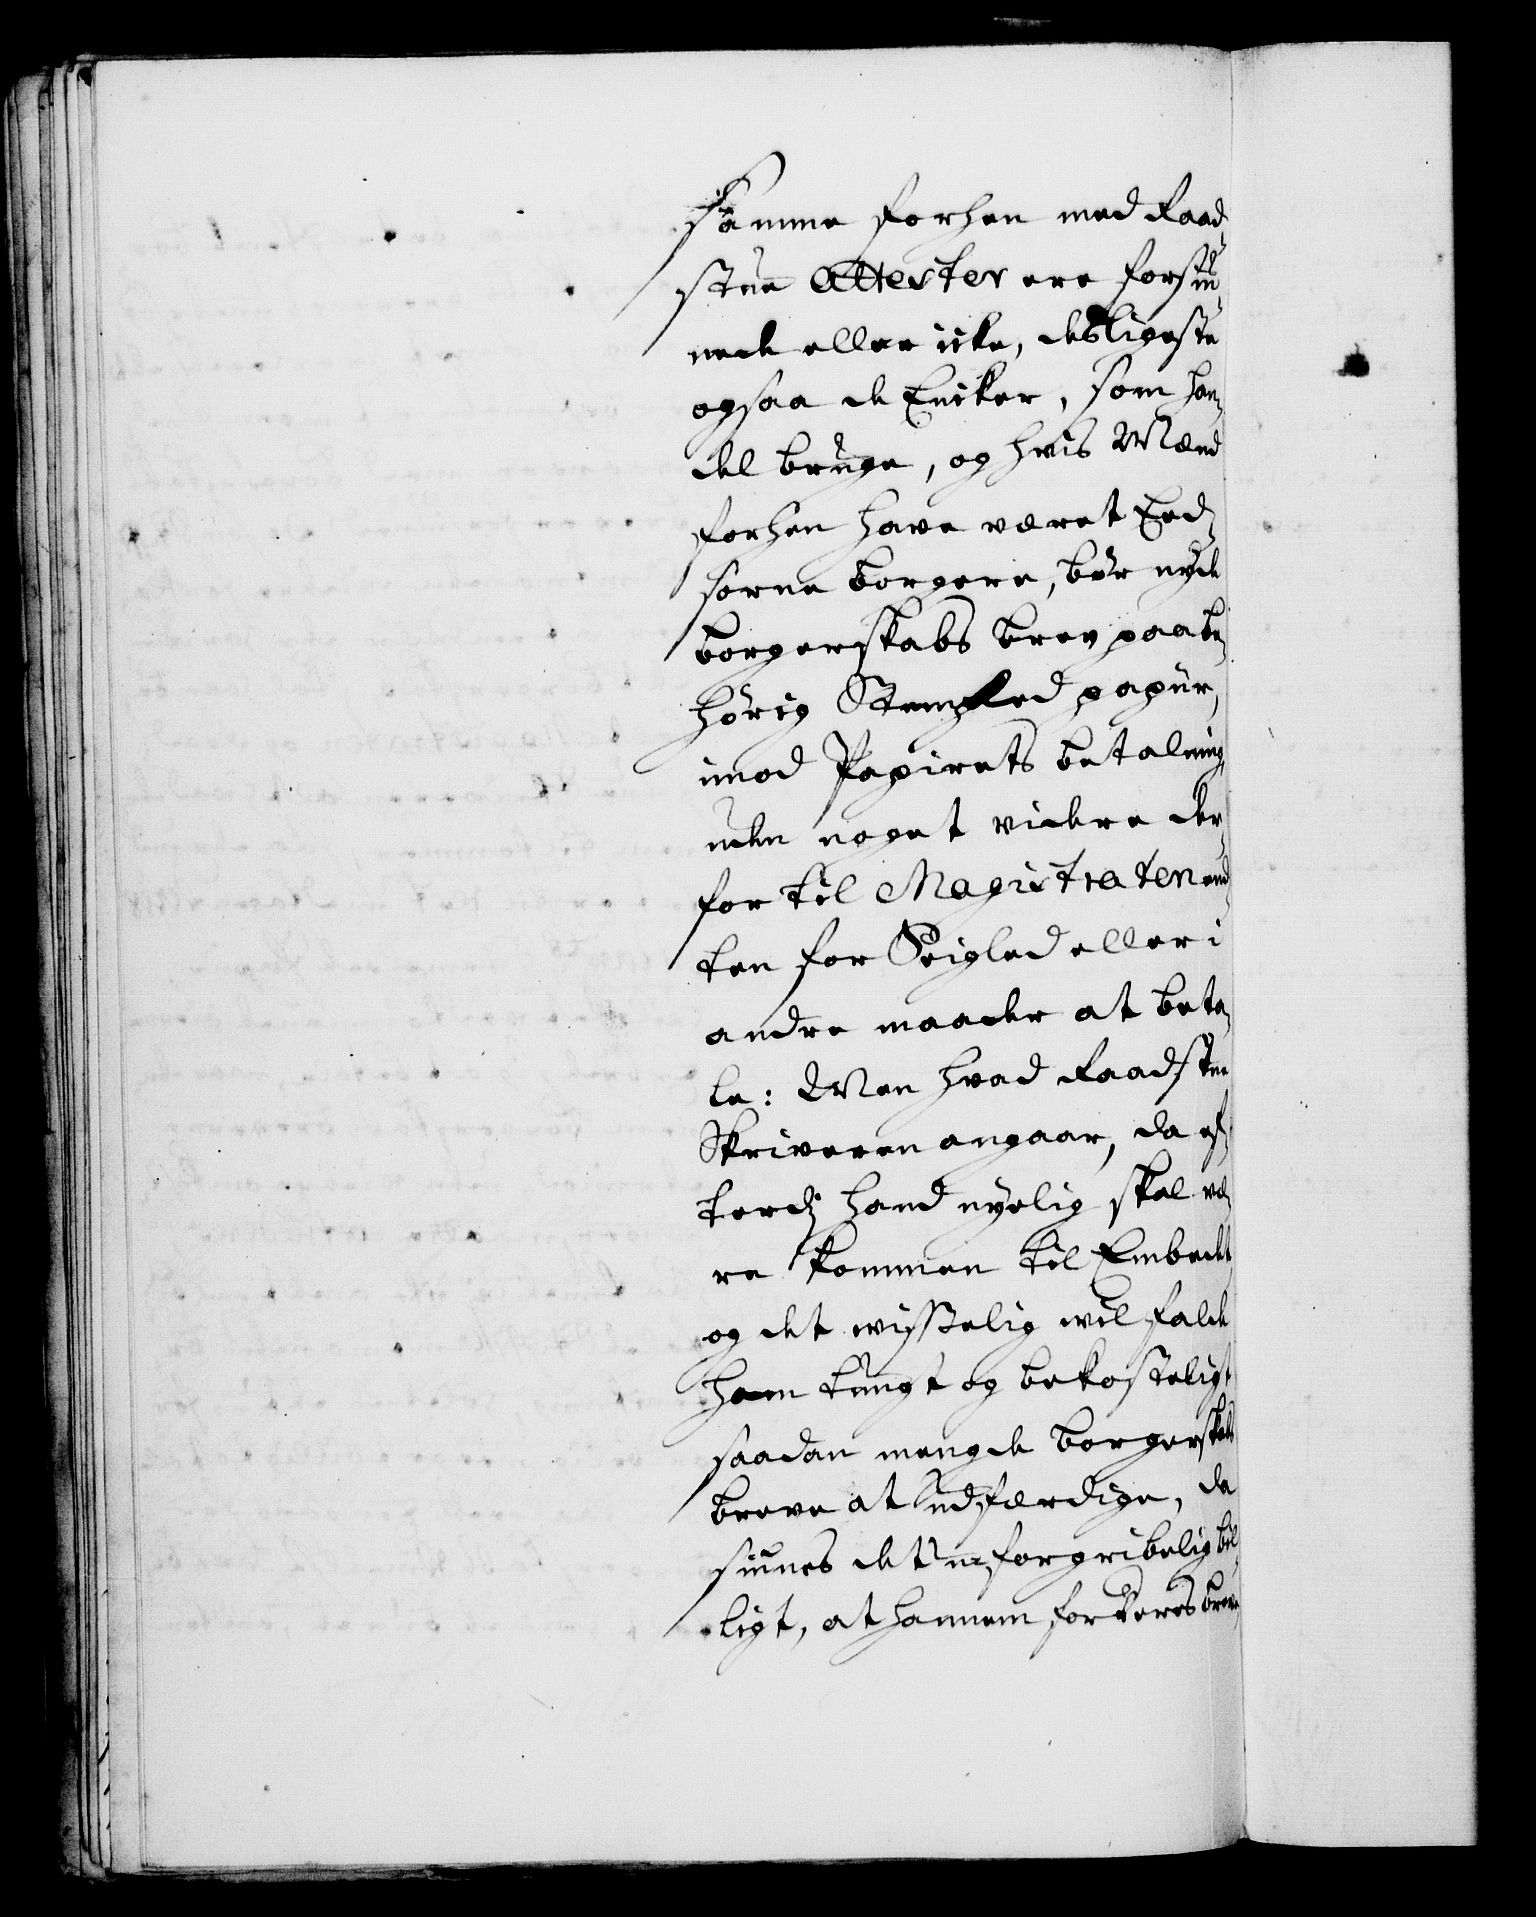 samme forhen med Raad-
stue Attester ere forsiu-
nede eller icke, desligeste
ogsaa de Encker, som han-
del bruge, og hvis Mænd
forhen have været Eed-
sorne borgere, bør nyde
borgerskabs brev paa be-
hörig Stempled papiir,
imod Papirets betaling
uden noget videre der-
for til Magistraten end-
ten for Seigled eller i
andre maader at beta-
le: Men hvad Raadstue
Skriveren angaar, da ef-
terdj hand nyelig skal væ-
re kommen til Embedet
og det wisselig wil falde
ham tungt og bekosteligt
saadan mengde borgerskabs
breve at udfærdige, da
siunes det uforgribelig bil-
ligt, at hannem for deres breve